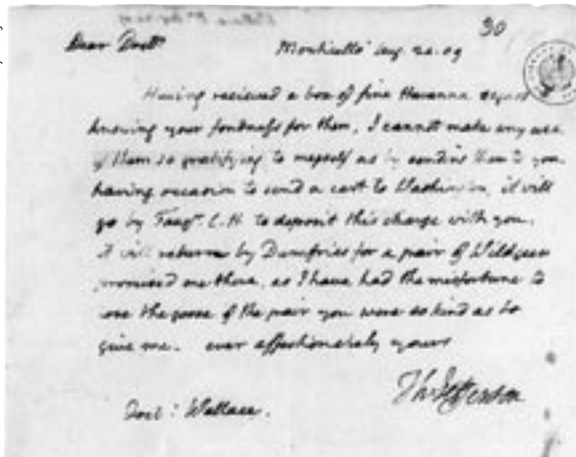 30
Dear Doctr Monticello Aug. 24. 09
Having recieved a box of fine Havanna segars &
knowing your fondness for them, I cannot make any use
of them so gratifying to myself as by sending them to you.
having occasion to send a cart to Washington, it will
go by Fauqr. C. H. to deposit this charge with you.
it will return by Dumfries for a pair of Wildgeese
promised me there, as I have had the misfortune to
lose the goose of the pair you were so kind as to
give me. ever affectionately yours
Th: Jefferson
Doct: Wallace.